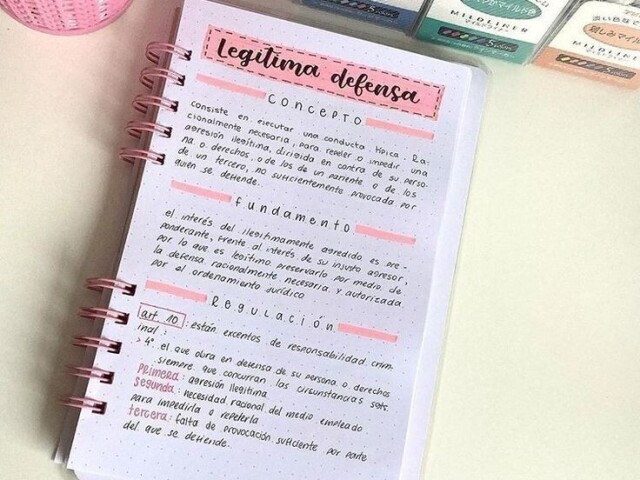 Legítima defensa
Concepto
consiste en ejecutar una conducta típica. Ra-
cionalmente necesaria, para repeler o impedir una
agresión ilegítima, dirigida en contra de su perso-
na o derechos o de los de un pariente o de los
de un tercero, no suficientemente provocada por
quien se defiende.
Fundamento
el interés del ilegítimamente agredido es pre-
ponderante, frente al interés de su injusto agresor,
por lo que es legítimo preservarlo por medio de
la defensa racionalmente necesaria y autorizada
por el ordenamiento jurídico
Regulación
art. 10: están excentos de responsabilidad crim-
inal:
> 4° el que obra en defensa de su persona o derechos
siempre que concurran las circunstancias sgts.
Primera: agresión ilegítima
Segunda: necesidad racional del medio empleado
para impedirla o repelerla
tercera: falta de provocación suficiente por parte
del que se defiende.
5 colors
マイルドライナー
マイルド色
MILDLINER
マイルドライナー
5 colors
淡い色なで
親しみマイル
MILDLINER
マイルドライナー
5 colors